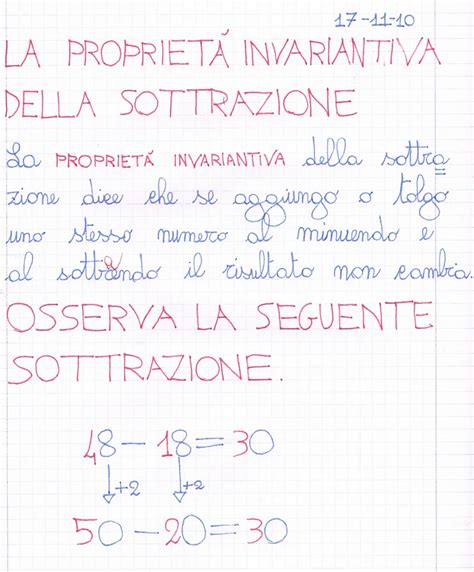 17-11-10
LA PROPRIETÁ INVARIANTIVA
DELLA SOTTRAZIONE
La PROPRIETÁ INVARIANTIVA della sottra
zione dice che se aggiungo o tolgo
uno stesso numero al minuendo e
al sottraendo il risultato non cambia.
OSSERVA LA SEGUENTE
SOTTRAZIONE.
48-18=30
+2 +2
50-20=30